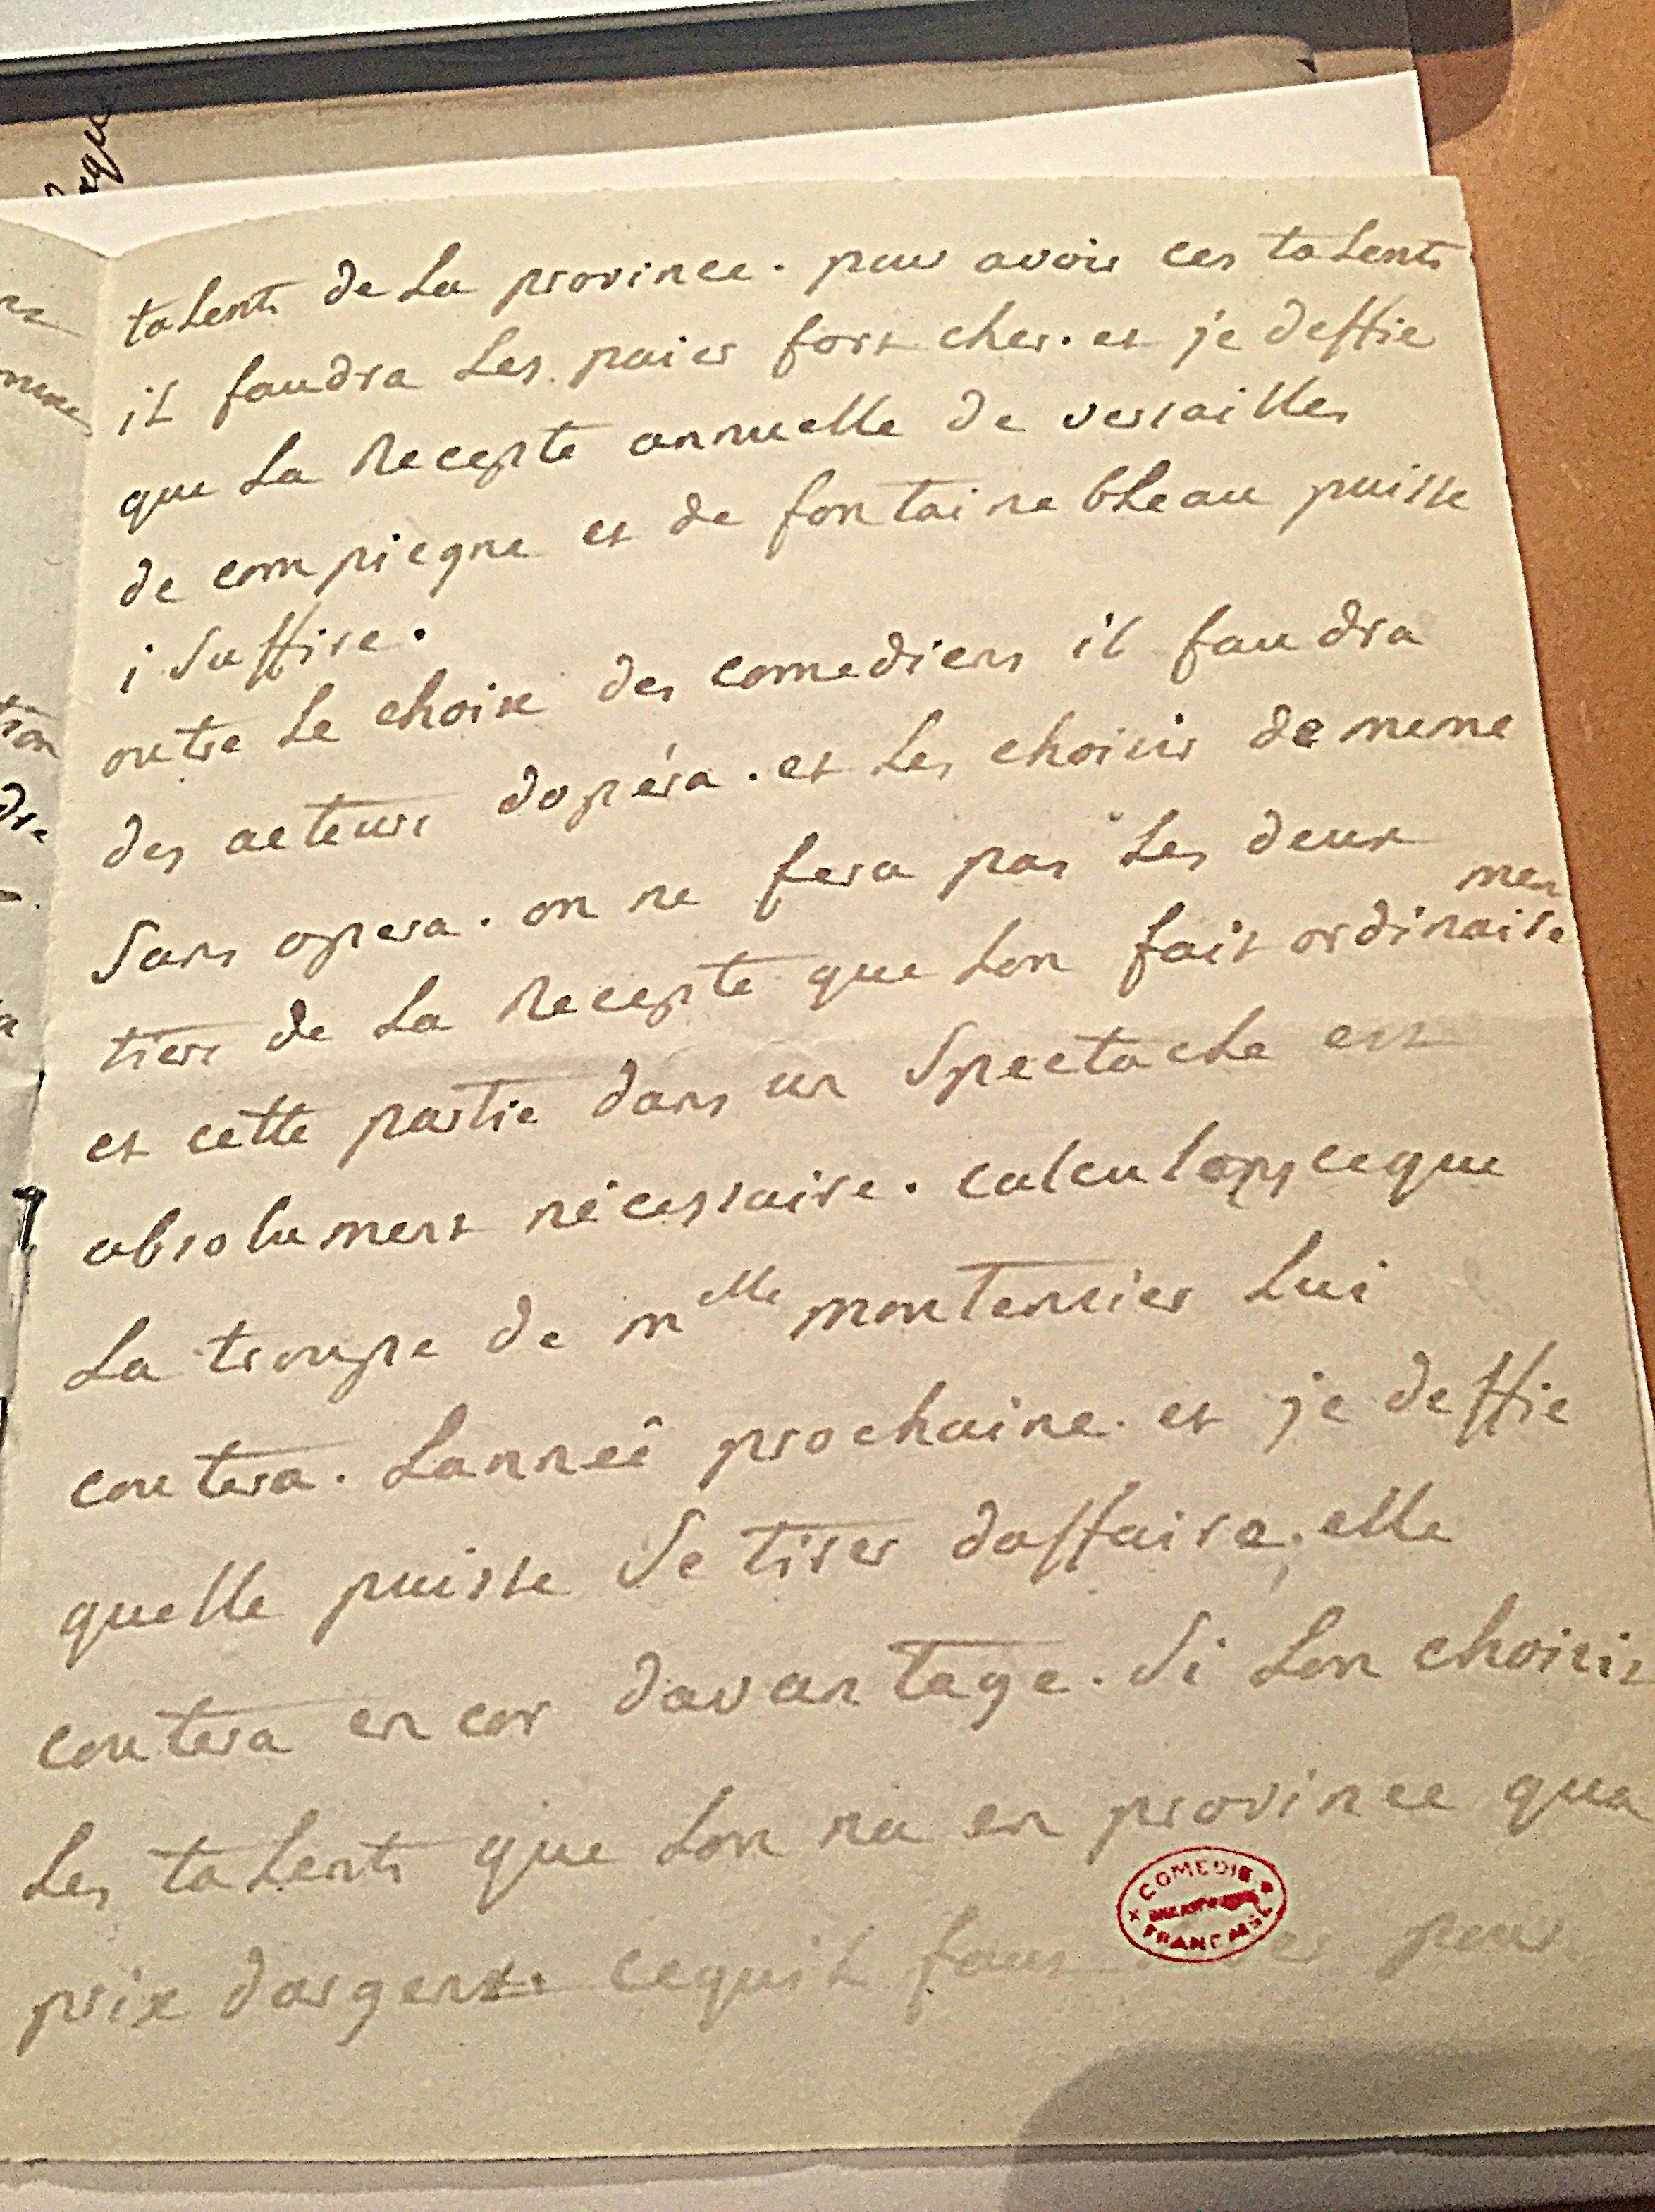 talents de La province. pour avoir ces talents
il faudra Les paier fort cher. et je deffie
que La Recepte annuelle de versailles
de compiegne et de fontainebleau puisse
i Suffire.
outre Le choix des comediens il faudra
des acteurs dopéra. et Les choisir de meme
Sans opera. on ne fera pas Les deux
tiers de La Recepte que Lon fait ordinairemen
et cette partie dans un Spectacle est
absolument nécessaire. calculons ceque
La troupe de melle montensier Lui
coutera. Lanneê prochaine. et je deffie
quelle puisse Se tirer daffaire, elle
coutera encor davantage. Si Lon choisit
Les talents que Lon na en province qua
prix dargent. cequil faut pour
COMEDIE
FRANCAISE